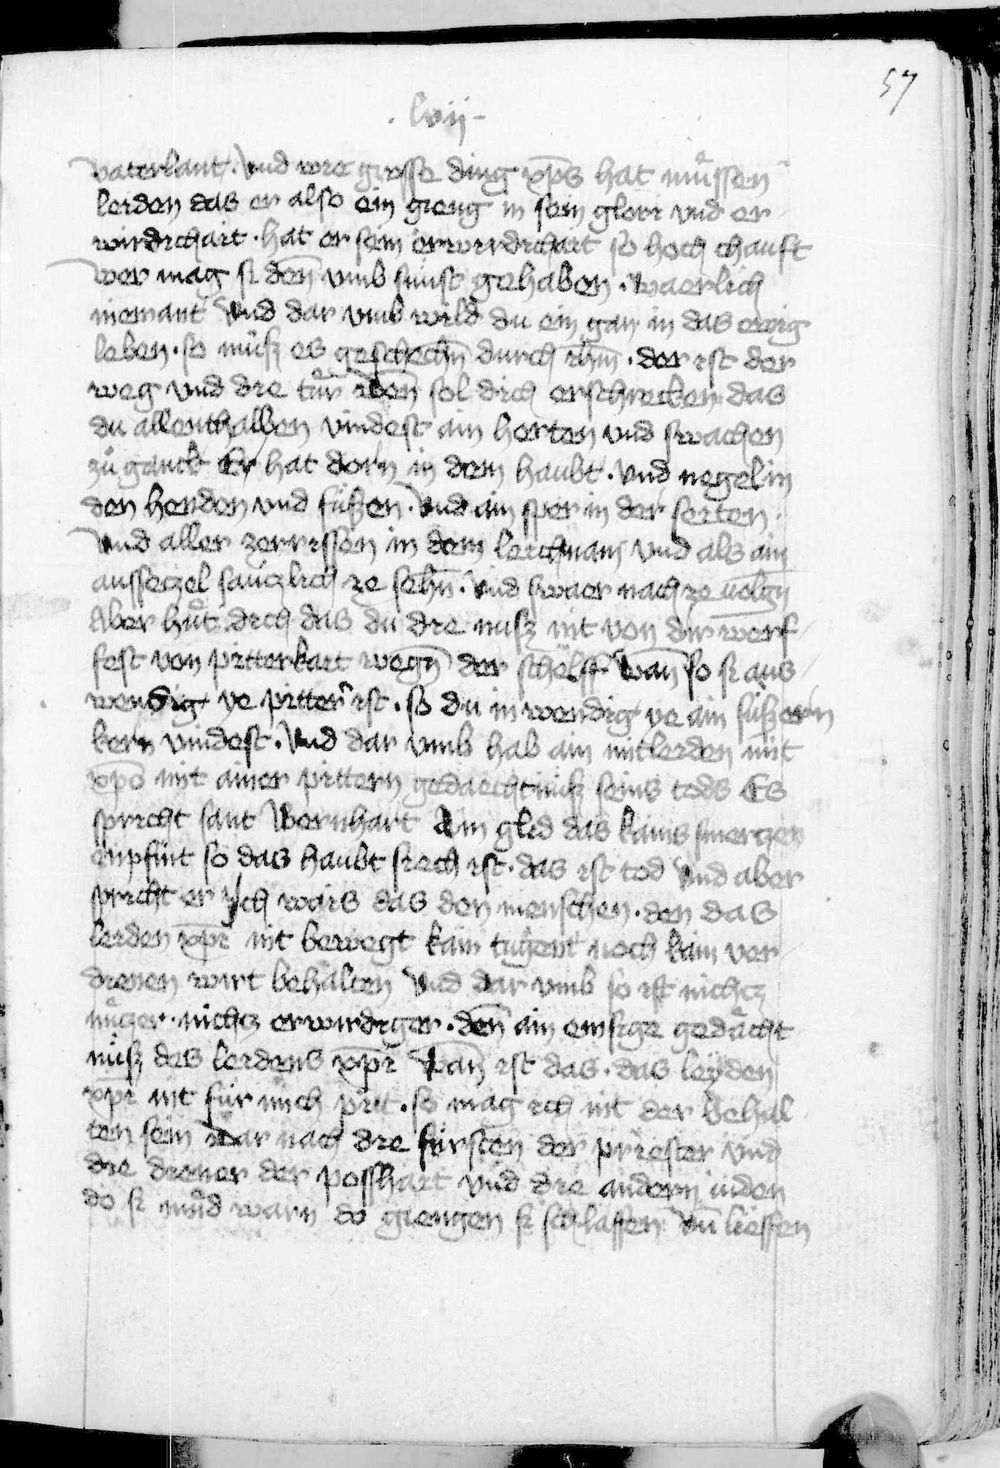 57
. lvij -
vaterlant. Vnd wie grosse ding xp̄s hat mu̇ssen
leiden das er also ein gieng in sein glori vnd er
wirdichait. hat er sein erwirdichait so hoch chauft
wer mag si den̄ vmb sunst gehaben. waerlich
niemant Vnd dar vmb wild du ein gan in das ewig
leben. so mu̇sz es geschechn̄ durch ih̄m. der ist der
weg vnd die tu̇r den̄ sol dich erschrecken das
du allenthalben vindest ain herten vnd swachen
zu̇ganck Er hat dorn in dem haubt. vnd negel in
den henden vnd fu̇szen. Vnd ain sper in der seiten.
Vnd aller zerrissen in dem leichnam vnd als ain
aussetzel sch ze sehn̄. Vnd swaer nach ze uolgn̄
Aber hu̇t dich das du die nusz nit von dir werf
fest von pitterkait wegn̄ der schelff wan̄ so si aus
wendig ye pitter ist. so du in wendig ye ain su̇szern
kern vindest. Vnd dar vmb hab ain mitleiden mit
xp̄o mit ainer pittern gedaechtnu̇sz seins tods Es
spricht sant Bernhart Ain glid das kains smerczen
enpfint so das haubt siech ist. das ist tod Vnd aber
spricht er ych wais das den menschen. den das
leiden xp̄i nit bewegt kain tugent noch kain ver
dienen wirt behalten Vnd dar vmb so ist nichcz
nu̇czer. nichcz erwirdiger. den̄ ain emsige gedȧcht
nu̇sz des leidens xp̄i wan̄ ist das. das leyden
xp̄i nit fu̇r mich pit. so mag ich nit der behal
ten sein Dar nach die fu̇rsten der priester vnd
die diener der posshait vnd die andern iuden
do si mu̇d warn do giengen si schlaffen vn̄ liessen